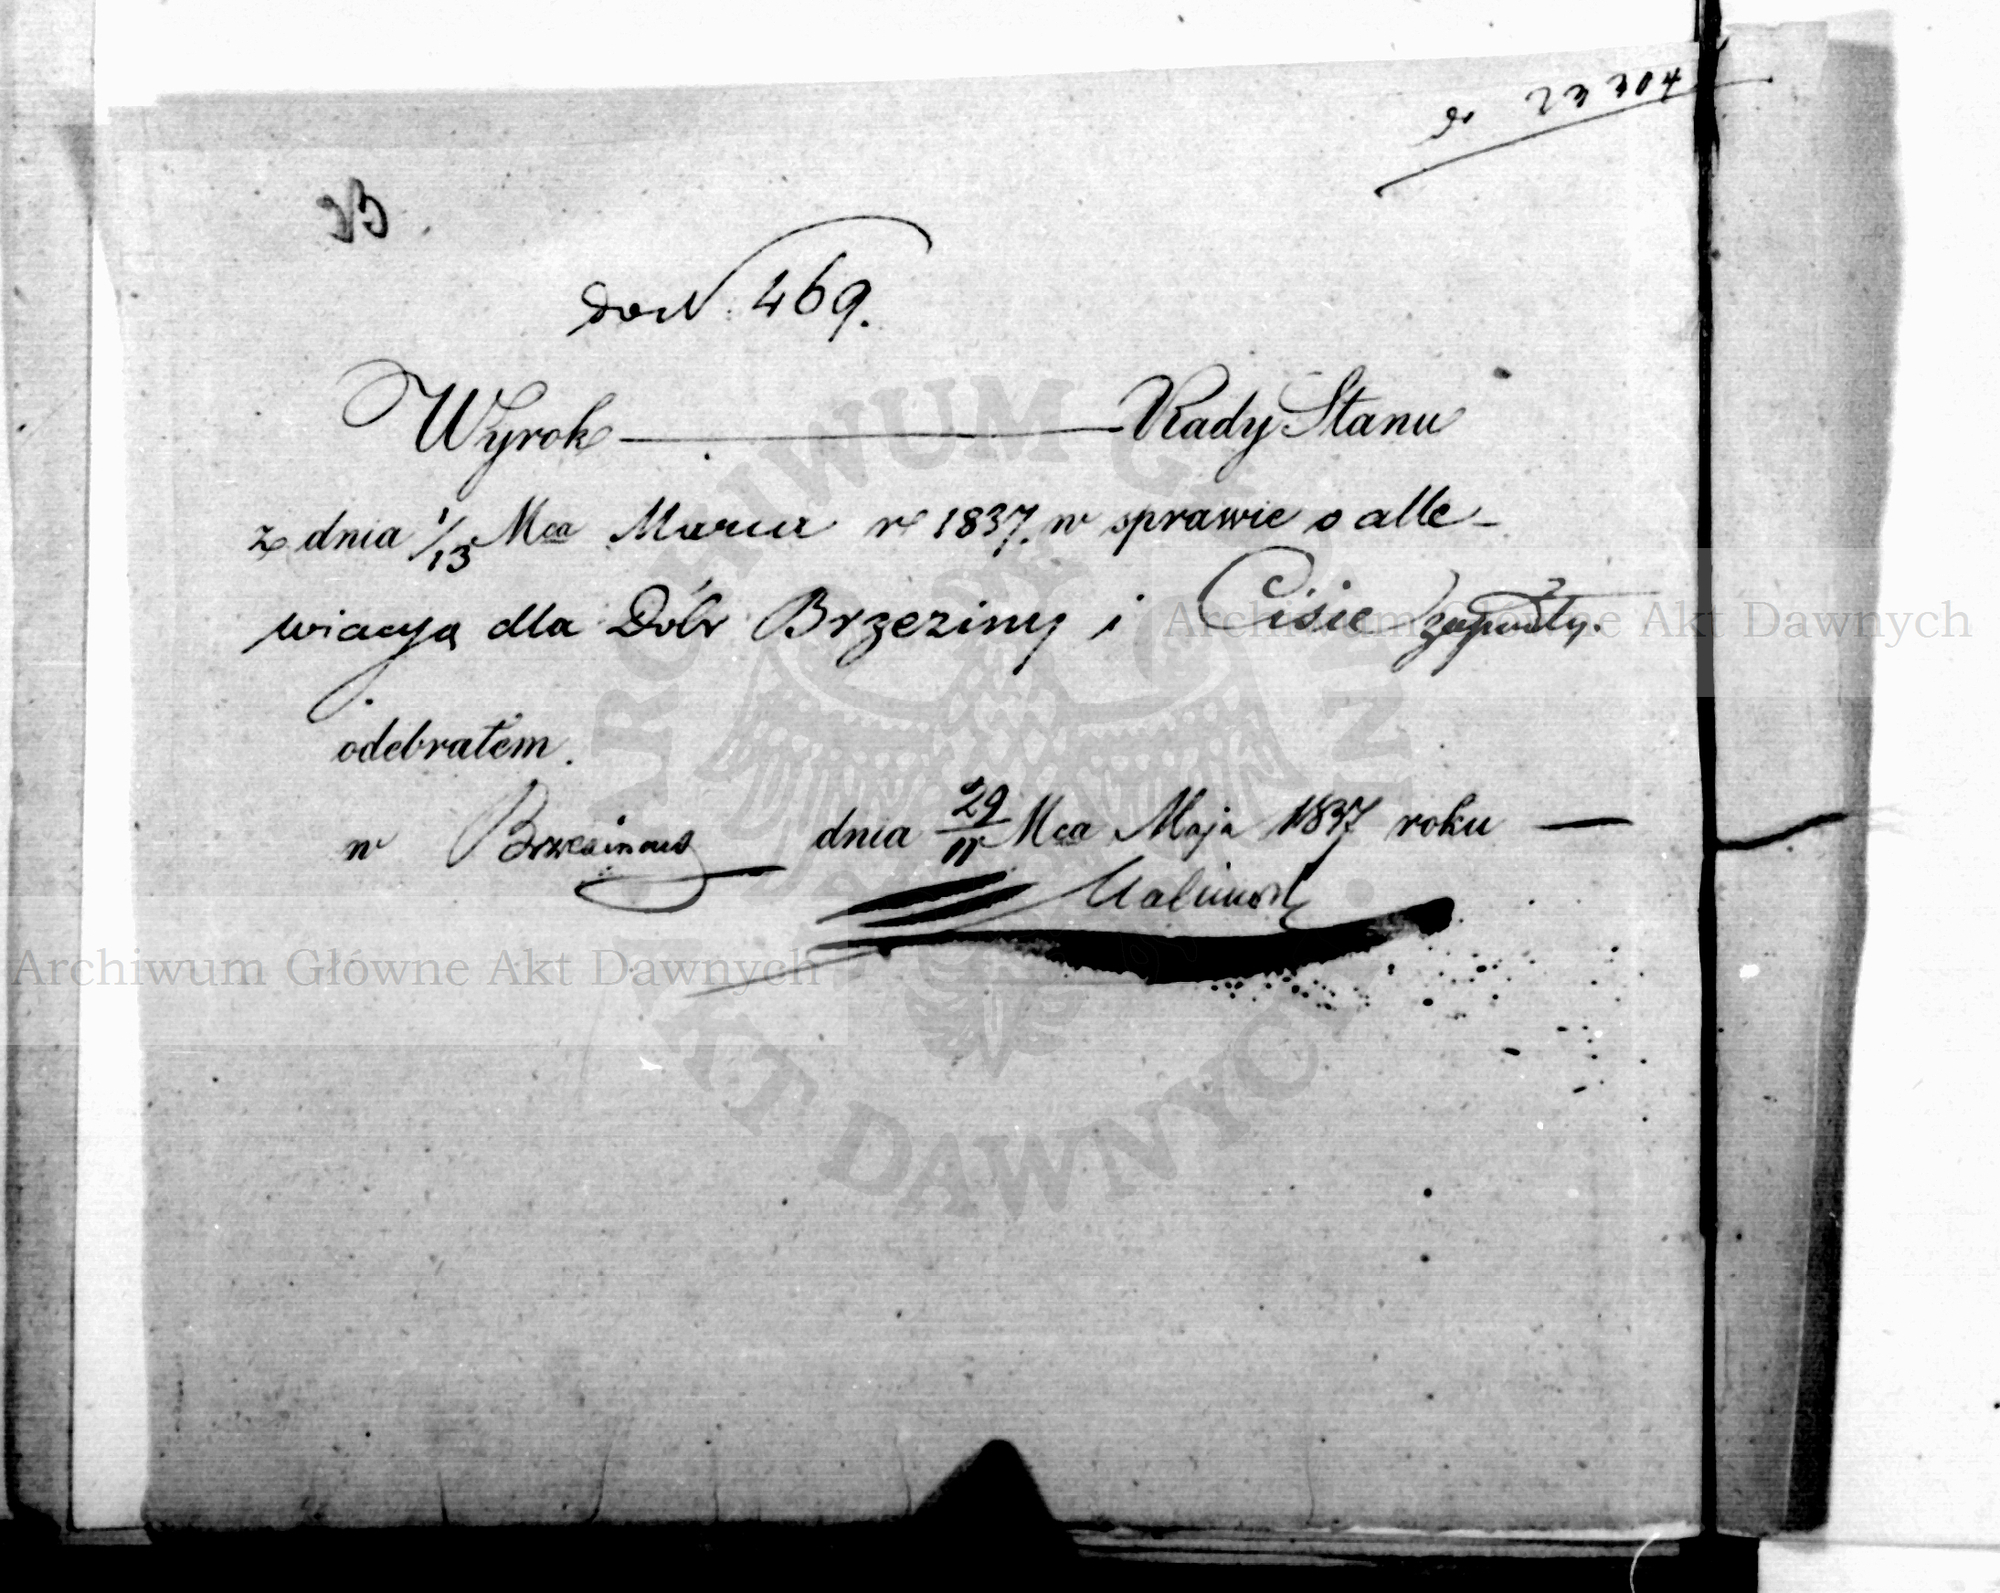 do 23304
do N. 469.
Wyrok — Rady Stanu
z dnia 1/13 Mca Marca r 1837. w sprawie o alle-
wiacyą dla Dóbr Brzeziny i Cisie zapadły.
odebrałem.
w Brzezinach dnia 29 Mca Maja 1837 roku —
Archiwum Główne Akt Dawnych
Archiwum Główne Akt Dawnych
ARCHIWUM GŁÓWNE AKT DAWNYCH